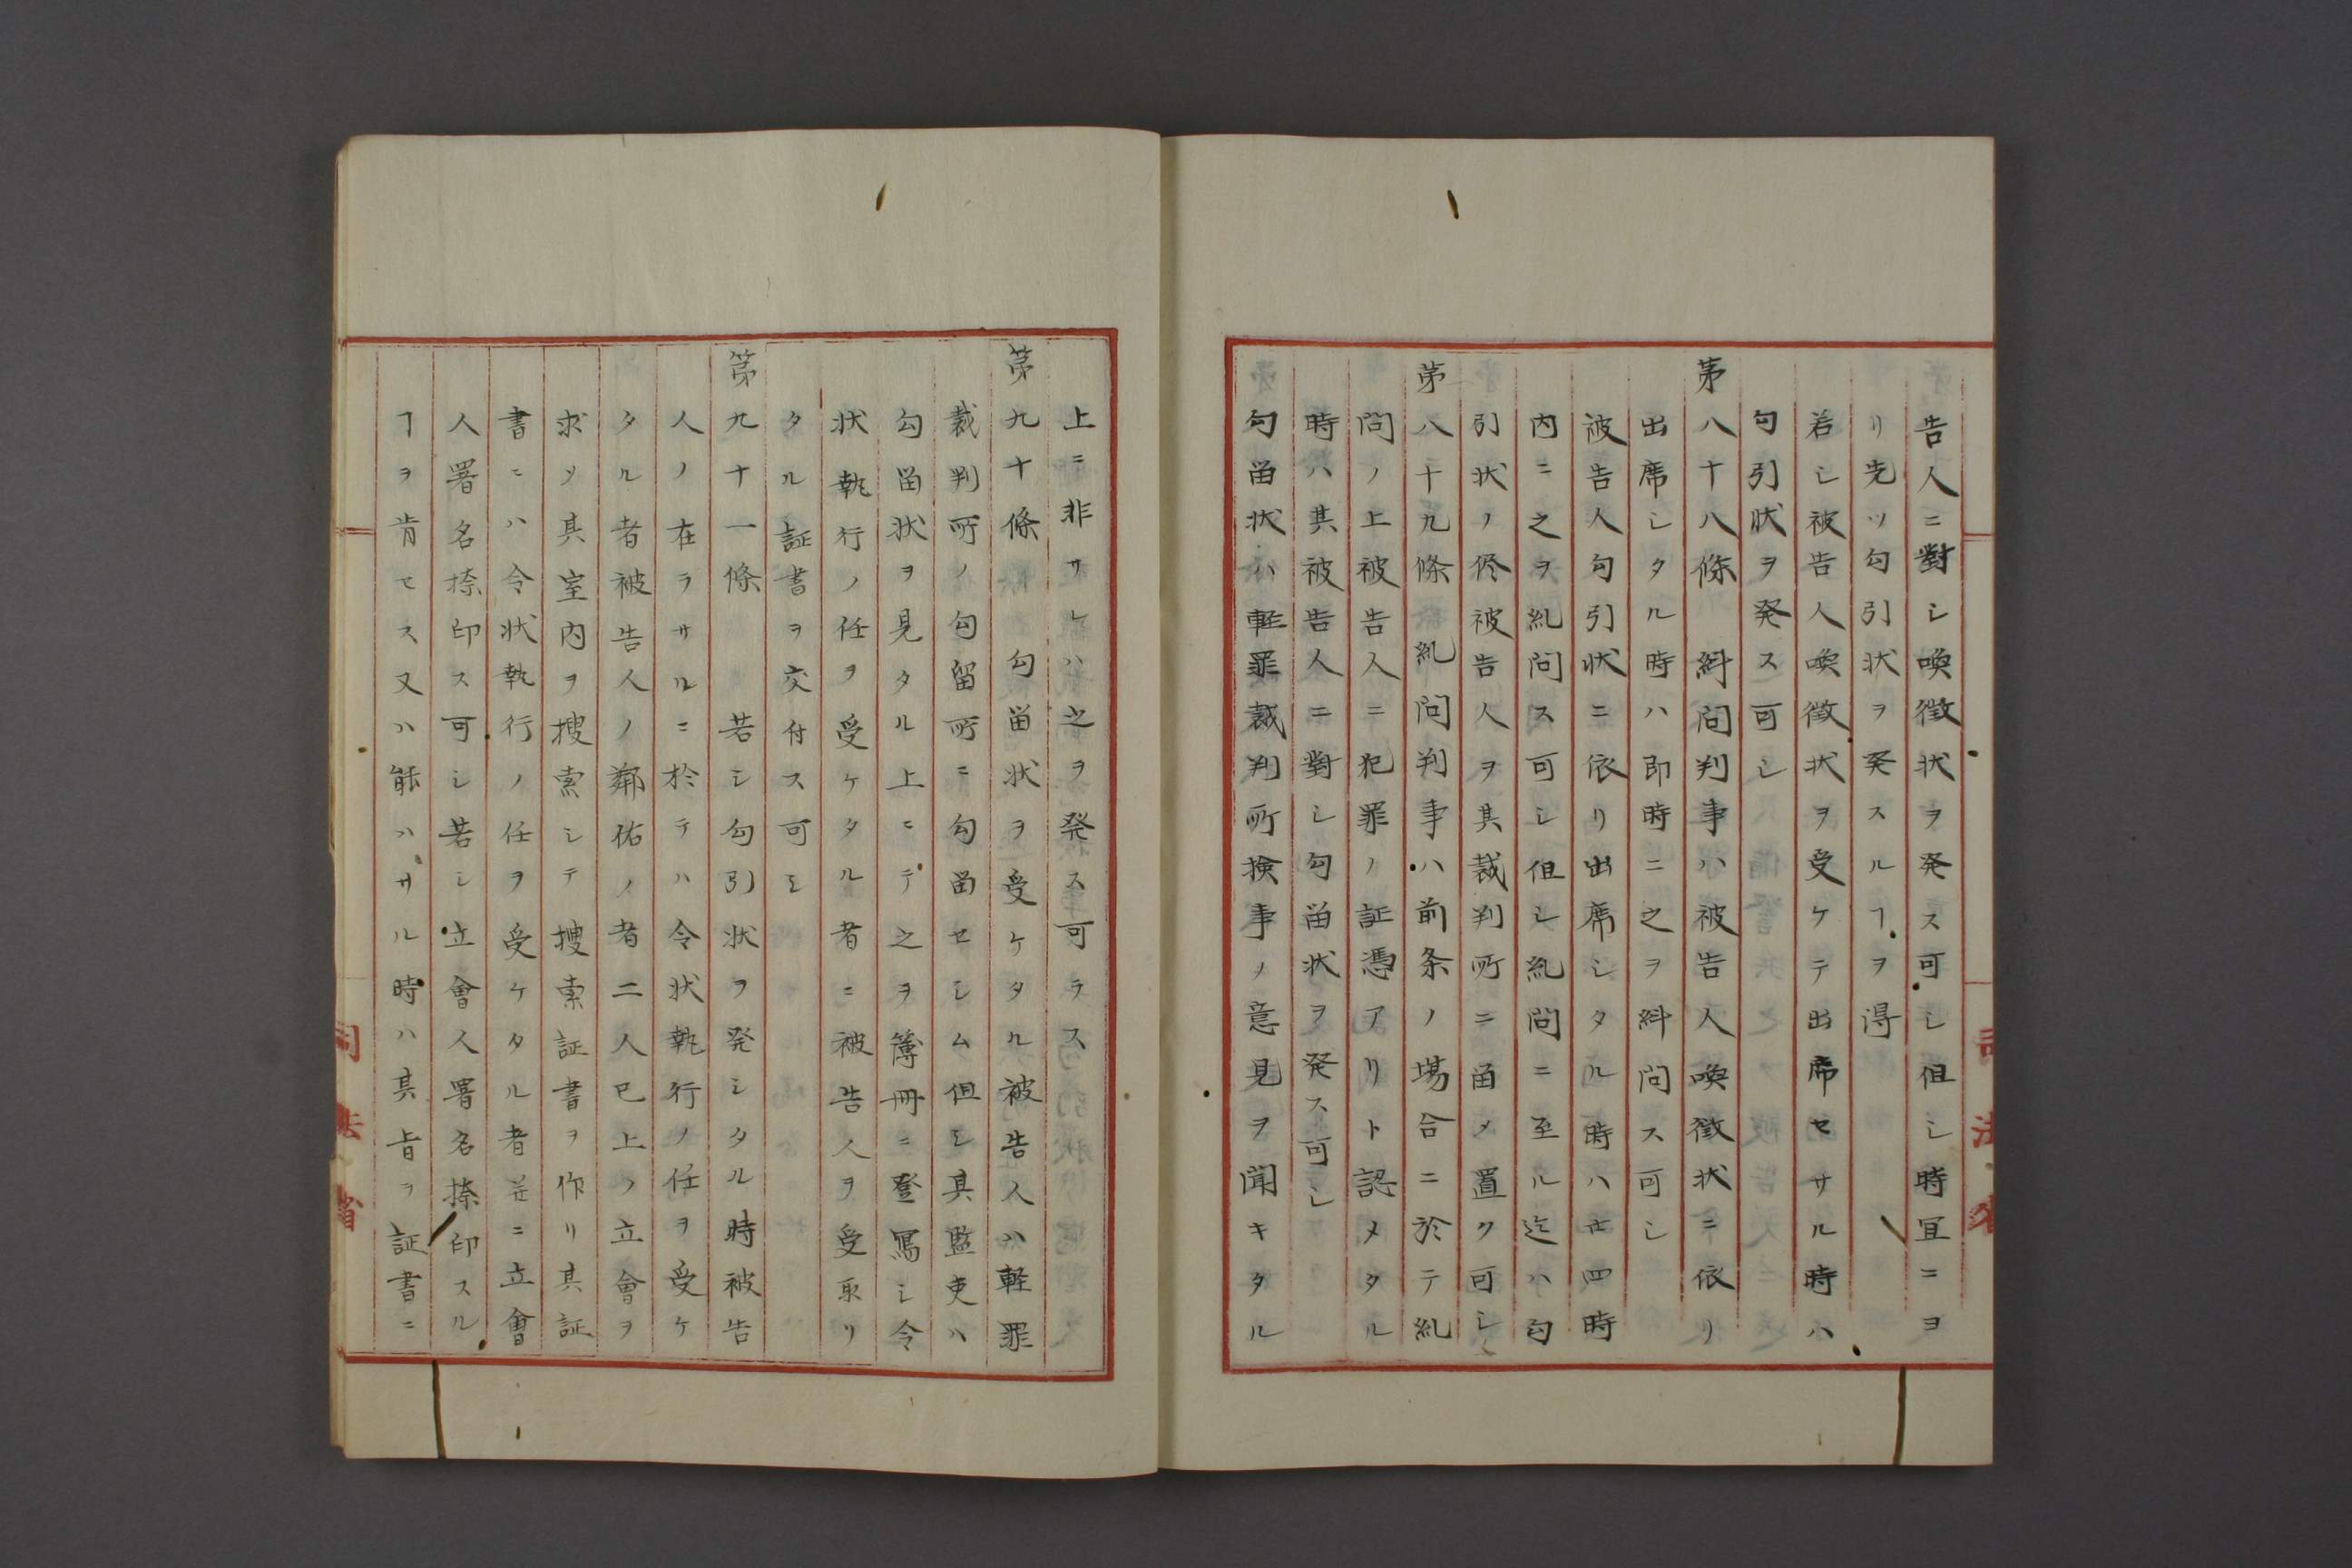 告人ニ對シ喚徴状ヲ発ス可シ但シ時宜ニヨ
リ先ツ勾引状ヲ発スルヿヲ得
若シ被告人喚徴状ヲ受ケテ出席セサル時ハ
勾引状ヲ発ス可シ
第八十八條 糾問判事ハ被告人喚徴状ニ依リ
出席シタル時ハ即時ニ之ヲ糾問ス可シ
被告人勾引状ニ依リ出席シタル時ハ廿四時
内ニ之ヲ糺問ス可シ但シ糺問ニ至ル迄ハ勾
引状ノ侭被告人ヲ其裁判所ニ留メ置ク可シ
第八十九條 糺問判事ハ前条ノ場合ニ於テ糺
問ノ上被告人ニ犯罪ノ証憑アリト認メタル
時ハ其被告人ニ對シ勾畄状ヲ発ス可シ
勾畄状ハ軽罪裁判所検事ノ意見ヲ聞キタル
上ニ非サレハ之ヲ発ス可ラス
第九十條 勾畄状ヲ受ケタル被告人ハ軽罪
裁判所ノ勾留所ニ勾畄セシム但シ其監吏ハ
勾畄状ヲ見タル上ニテ之ヲ簿冊ニ登寫シ令
状執行ノ任ヲ受ケタル者ニ被告人ヲ受取リ
タル証書ヲ交付ス可シ
第九十一條 若シ勾引状ヲ発シタル時被告
人ノ在ラサルニ於テハ令状執行ノ任ヲ受ケ
タル者被告人ノ鄰佑ノ者二人已上ノ立會ヲ
求メ其室内ヲ捜索シテ捜索証書ヲ作リ其証
書ニハ令状執行ノ任ヲ受ケタル者並ニ立會
人署名捺印ス可シ若シ立會人署名捺印スル
ヿヲ肯セス又ハ能ハサル時ハ其旨ヲ証書ニ
司法省
司法省